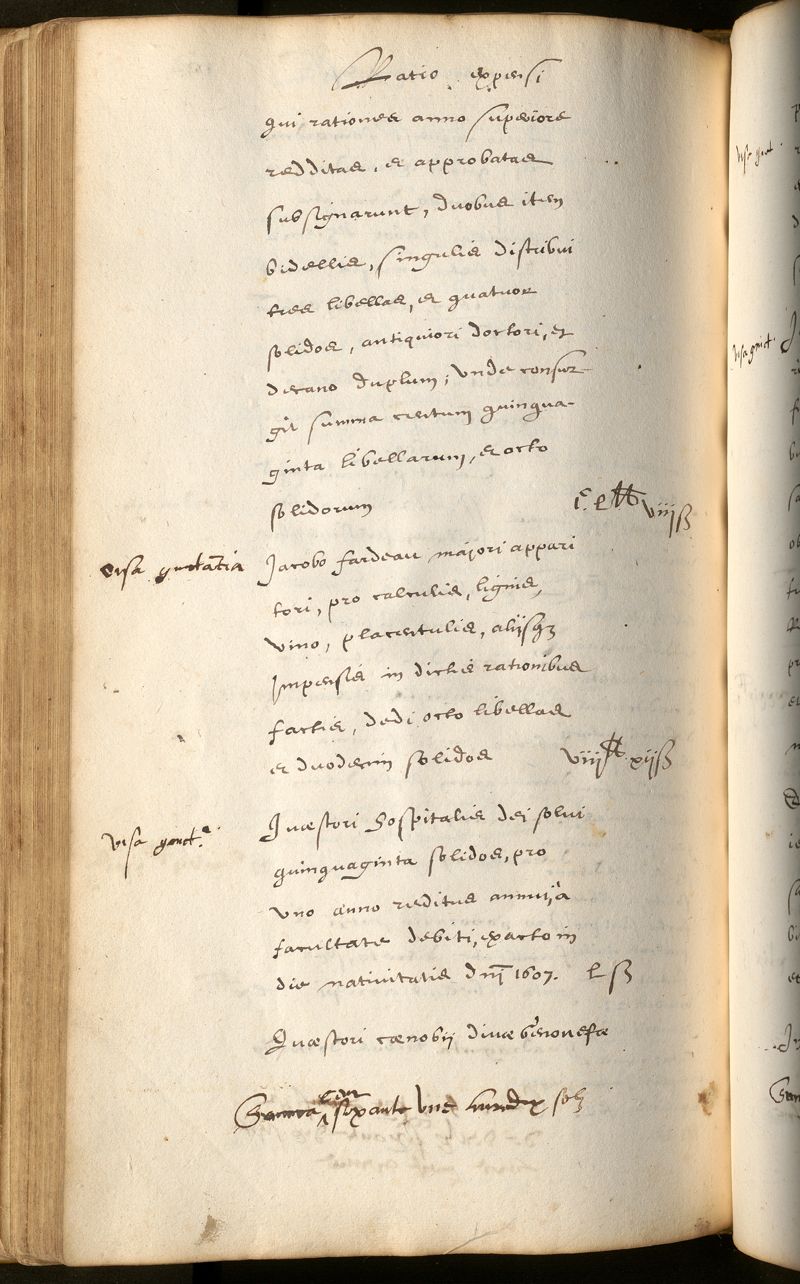 Ratio expensi
qui rationes anno superiore
redditas, et approbatas
subsignarunt, duobus item
bidellis, singulis distribui
tres libellas, et quatuor
solidos, antiquiori doctori, et
decano duplum; unde consur-
git summa centum quinqua-
ginta libellarum, et octo
solidorum
C L ℔ viij ß
visa quitatia
Jacobo fardeau majori appari
tori, pro calculis, lignis,
vino, placentulis, alijsqz
impensis in dictis rationibus
factis, dedi octo libellas
et duodecim solidos
viij ℔ xij ß
visa quict.a
Quæstori hospitalis dei solui
quinquaginta solidos, pro
uno anno reditus annui, a
facultate debiti, exacto in
die nativitatis dnj 1607. L ß
Quæstori cænobij divæ Genovefæ
Summa cent soixante une # dix solz